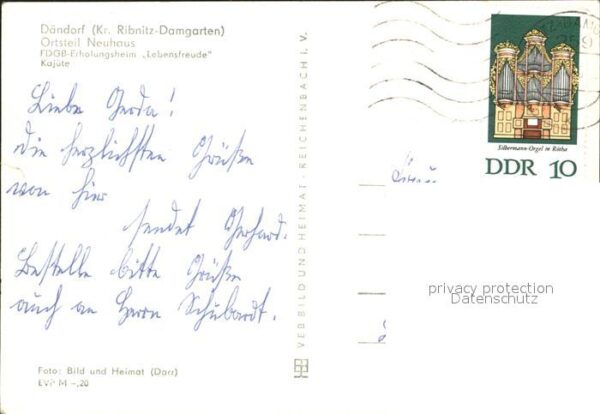 Dändorf (Kr. Ribnitz-Damgarten)
Ortsteil Neuhaus
FDGB-Erholungsheim „Lebensfreude"
Kajüte
Liebe Gerda!
Die herzlichsten Grüße
von hier
sendet Gerhard.
Bestelle bitte Grüße
auch an Herrn Schubardt.
Foto: Bild und Heimat (Darr)
EVP M –,20
VEB BILD UND HEIMAT · REICHENBACH I. V.
Silbermann-Orgel in Rötha
DDR 10
privacy protection
Datenschutz